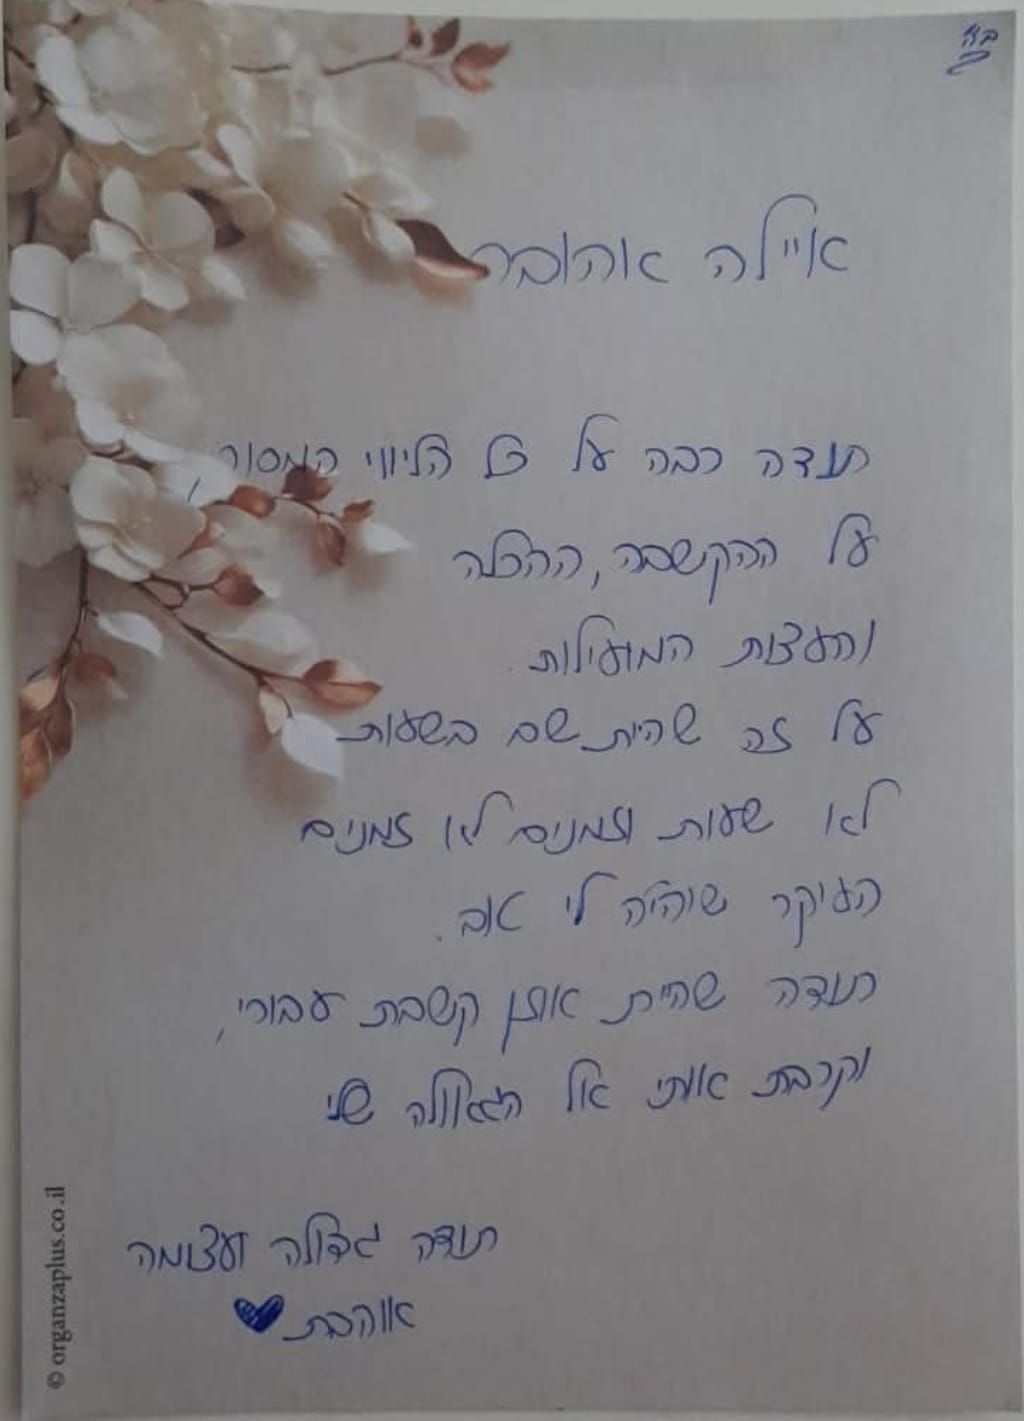 בה
איילה אהובה
תודה רבה על כל הליווי המסור,
על ההקשבה, ההכלה
והעצות המועילות.
על זה שהיית שם בשעות
לא שעות וזמנים לא זמנים
העיקר שיהיה לי טוב.
תודה שהיית אוזן קשבת עבורי,
וקרבת אותי אל הגאולה שלי
תודה גדולה ועצומה
אוהבת
© organzaplus.co.il